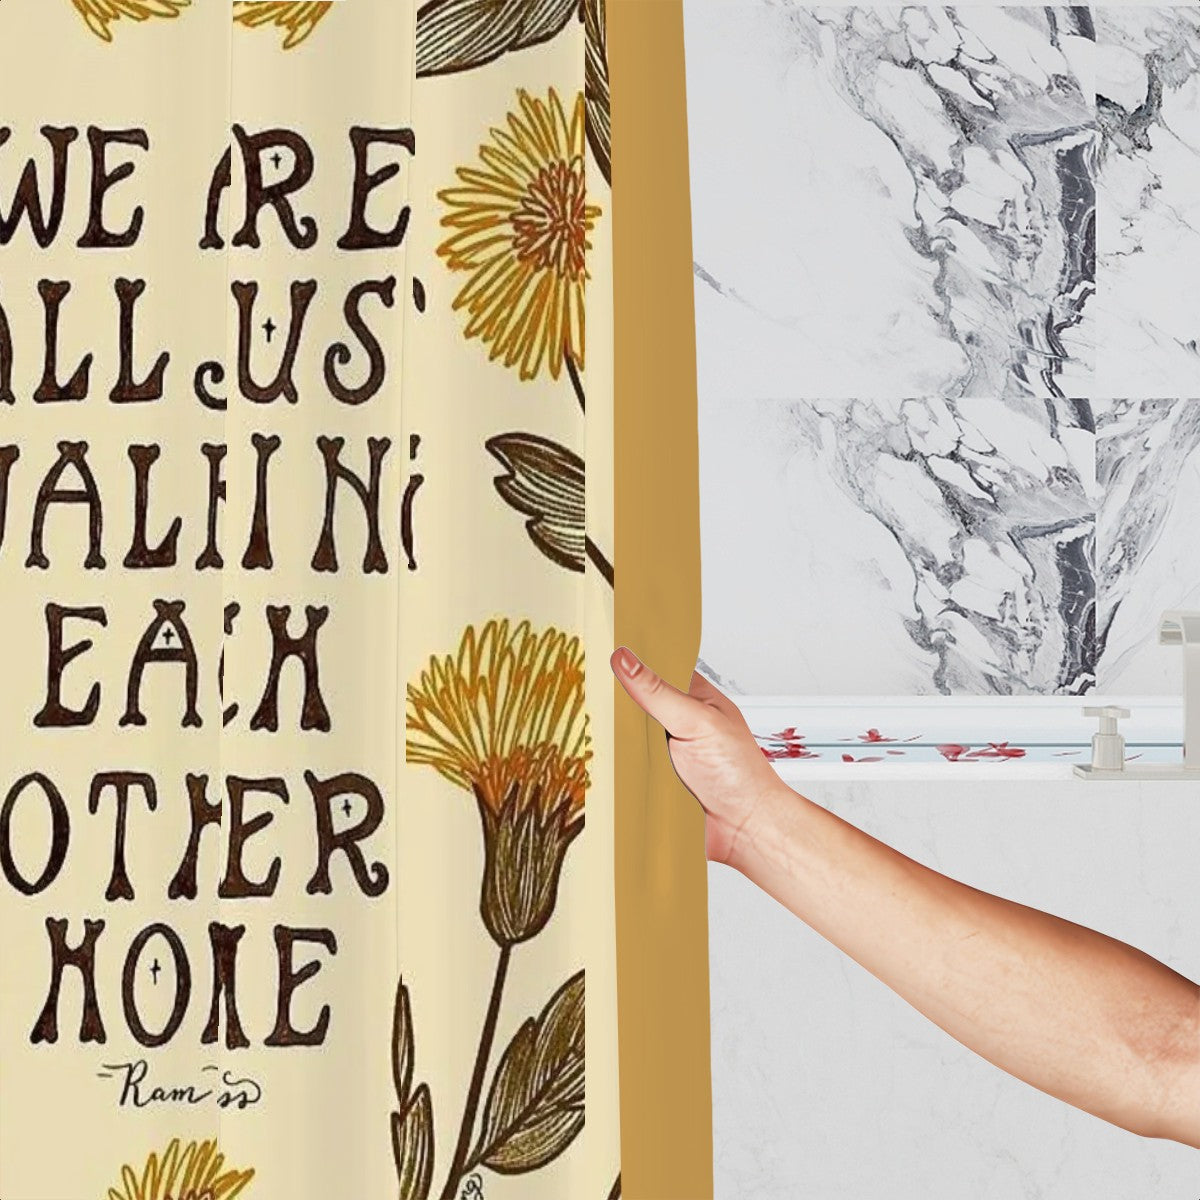 WE ARE
ALL JUST
WALKING
EACH
OTHER
HOME
-Ram Dass